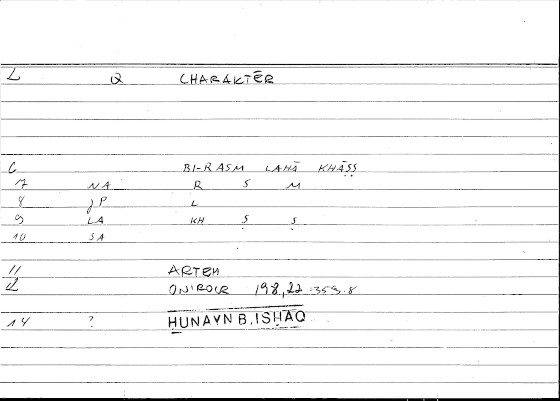 2 Q CHARAKTĒR
6 BI-RASM LAHĀ KHĀṢṢ
7 NA R S M
8 JP L
9 LA KH Ṣ Ṣ
10 SA
11 ARTEM
12 ONIROCR 198,22 = 359.8
14 ? ḤUNAYN B. ISḤĀQ